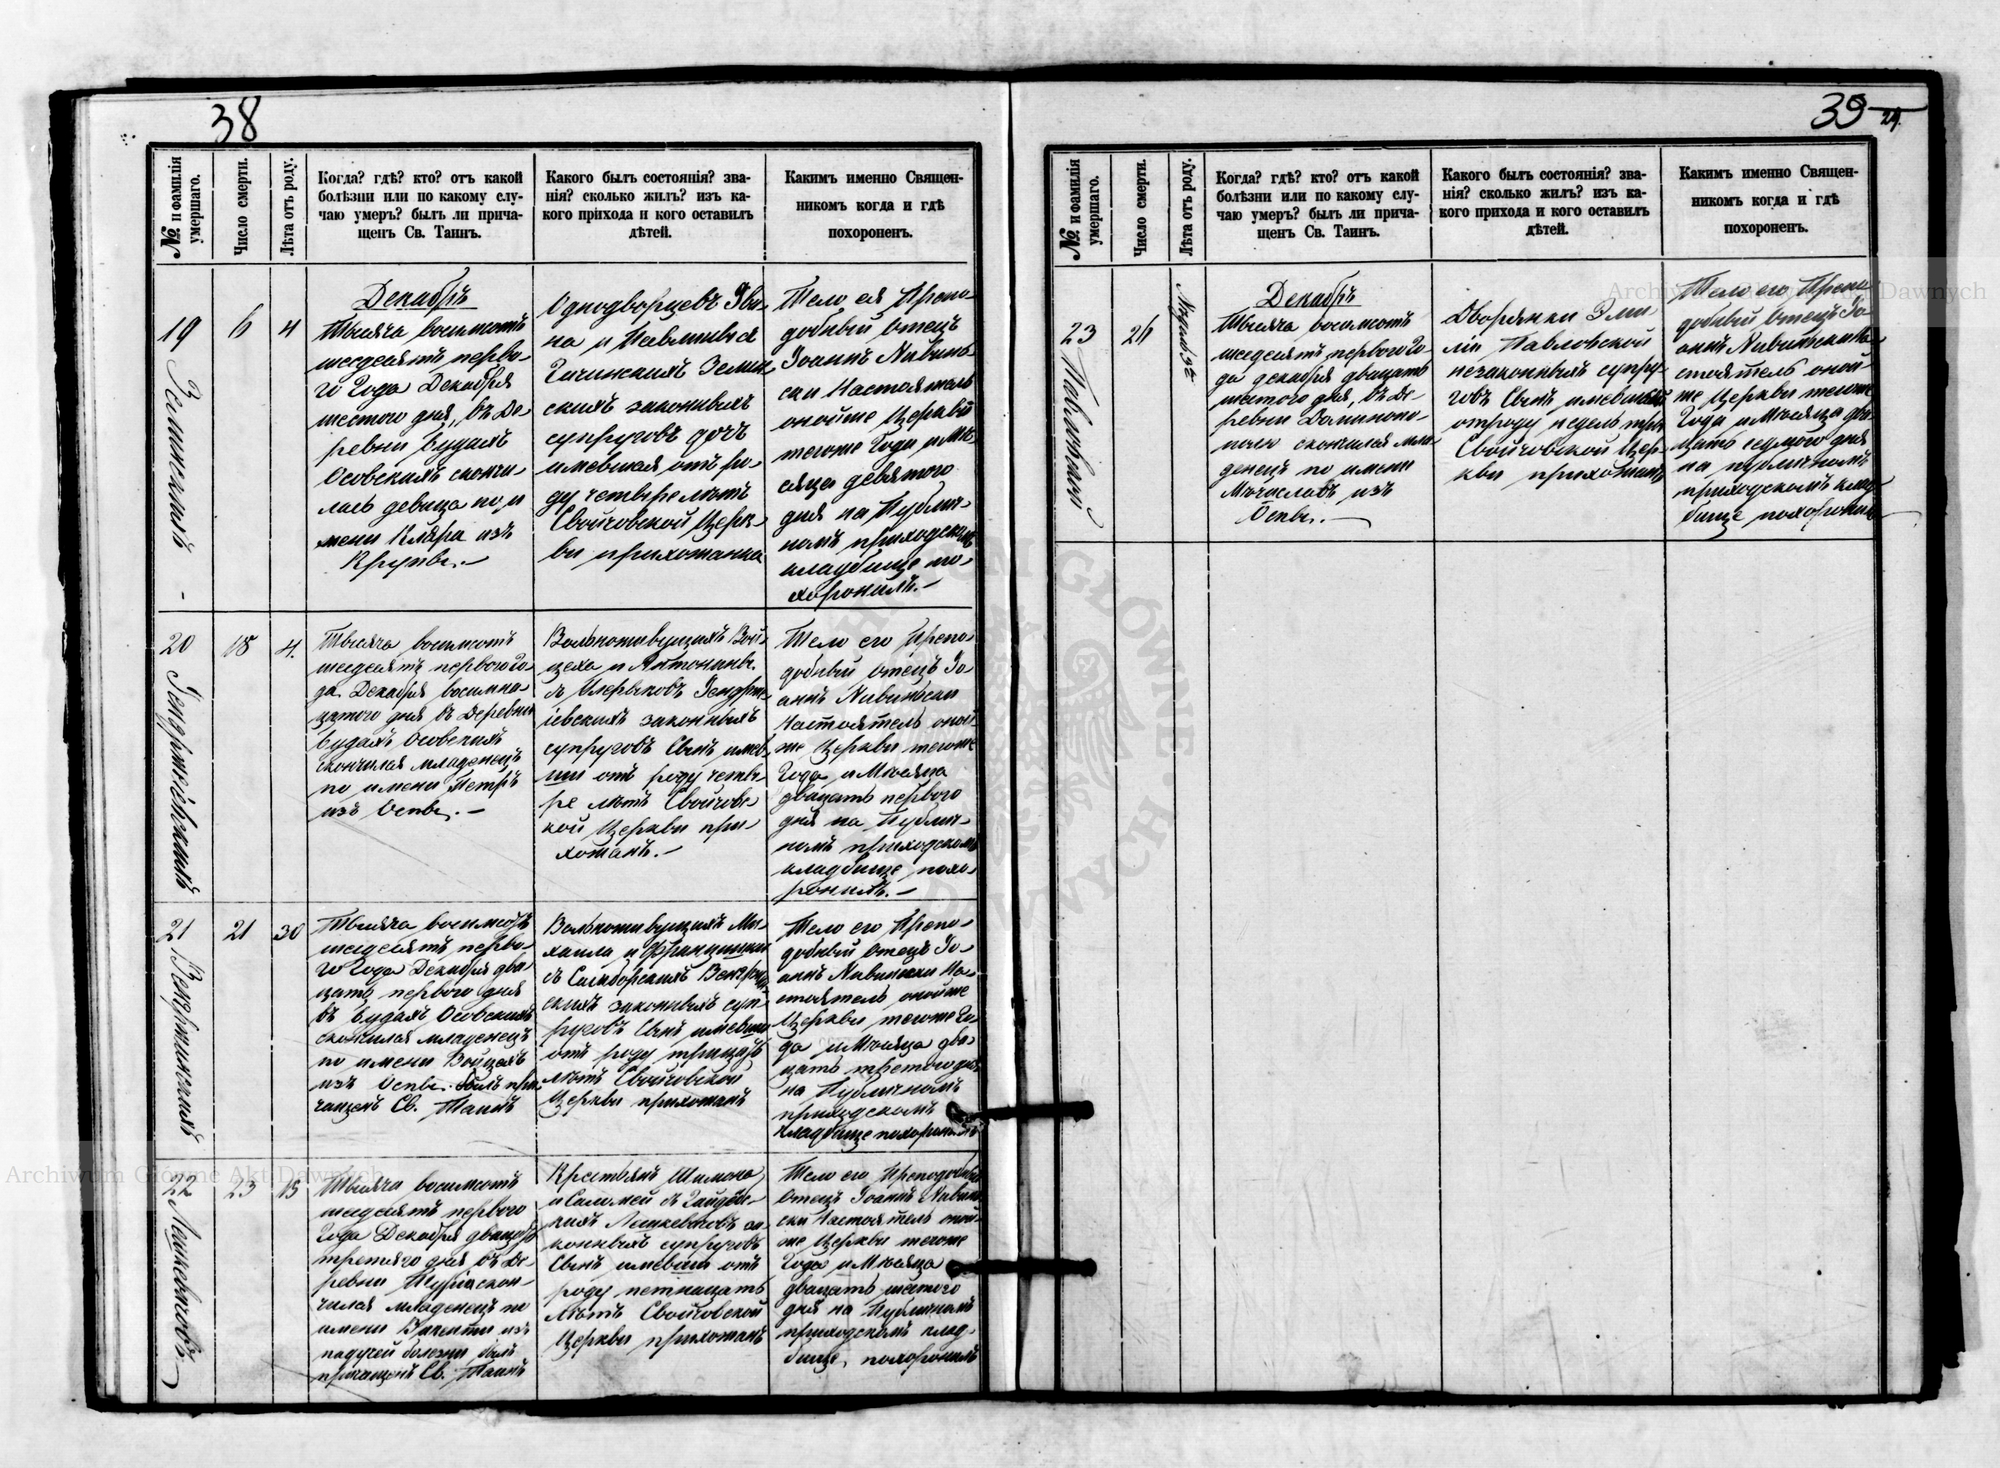 38
№ и фамилія умершаго.
Число смерти.
Лѣта отъ роду.
Когда? гдѣ? кто? отъ какой
болѣзни или по какому слу-
чаю умеръ? былъ ли прича-
щенъ Св. Таинъ.
Какого былъ состоянія? зва-
нія? сколько жилъ? изъ ка-
кого прихода и кого оставилъ
дѣтей.
Какимъ именно Священ-
никомъ когда и гдѣ
похороненъ.
19
6
4
Декабрь
Тысяча восимсотъ
шесдесятъ перво-
го Года Декабря
шестого дня, въ Де-
ревни Будахъ
Осовскихъ скончи-
лась девица по и
мени Клара изъ
Крупы.-
Однодворцевъ
на и
законныхъ
супруговъ дочь
имевшая отъ ро-
ду четыре летъ
Свойчовской Церк-
ви прихожанка
Тело ея Препо-
добный Отецъ
Іоаннъ
Настоятель
онойже Церкви
тогоже Года и Ме-
сяца девятого
дня на Публич-
номъ приходскомъ
кладбище по-
хоронилъ.-
20
18
4.
Тысяча восимсотъ
шесдесятъ первого Го-
да Декабря восимна-
цатого дня въ Деревни
Будахъ Осовскихъ
скончился младенецъ
по имени Петръ
изъ Оспы.-
Вольноживущихъ Вой-
цеха и Антонины
законныхъ
супруговъ Сынъ имев
ши отъ роду четы-
ре летъ Свойчовс-
кой Церкви при-
хожанъ.-
Тело его Препо-
добный Отецъ Іо-
аннъ
Настоятель оной
же Церкви тогоже
Года и Месяца
двацать первого
дня на Публич-
номъ приходскомъ
кладбище похо-
ронилъ.-
21
21
30
Тысяча восимсотъ
шесдесятъ перво-
го Года Декабря два-
цать первого дня
въ Будахъ Осовскихъ
скончился младенецъ
по имени Войцехъ
изъ Оспы. былъ при
чащенъ Св. Таинъ
Вольноживущихъ Ми-
хаила и Францишки
законныхъ суп-
руговъ Сынъ имевши
отъ роду трицать
летъ Свойчовской
Церкви прихожанъ
Тело его Препо-
добный Отецъ Іо-
аннъ На-
стоятель онойже
Церкви тогоже Го-
да и Месяца два-
цать третого дня
на Публичномъ
приходскомъ
кладбище похоронилъ
22
23
15
Тысяча восимсотъ
шесдесятъ первого
Года Декабря двацать
третяго дня въ Де-
ревни скон-
чился младенецъ по
имени изъ
падучей болезни былъ
причащенъ Св. Таинъ
Крестьянъ Шимона
и Саломеи
за-
конныхъ супруговъ
Сынъ имевши отъ
роду петнацать
летъ Свойчовской
Церкви прихожанъ
Тело его Преподобный
Отецъ Іоаннъ
Настоятель оной-
же Церкви тогоже
Года и Месяца
двацать шестого
дня на Публичномъ
приходскомъ клад-
бище, похоронилъ
39
24.
№ и фамилія умершаго.
Число смерти.
Лѣта отъ роду.
Когда? гдѣ? кто? отъ какой
болѣзни или по какому слу-
чаю умеръ? былъ ли прича-
щенъ Св. Таинъ.
Какого былъ состоянія? зва-
нія? сколько жилъ? изъ ка-
кого прихода и кого оставилъ
дѣтей.
Какимъ именно Священ-
никомъ когда и гдѣ
похороненъ.
23
26
Декабрь
Тысяча восимсотъ
шесдесятъ первого Го-
да декабря двацать
шестого дня, въ Де-
ревни
скончился мла-
денецъ по имени
Мечиславъ изъ
Оспы.-
Дворянки Эми-
ліи Павловской
незаконныхъ супру-
говъ Сынъ имевши
отроду недель три
Свойчовской Цер-
кви прихожанъ
Тело его Препо-
добный Отецъ Іо-
аннъ На-
стоятель оной-
же Церкви тогоже
Года и Месяца два-
цать седмого дня
на публичномъ
приходскомъ клад-
бище похоронилъ
Archiwum Główne Akt Dawnych